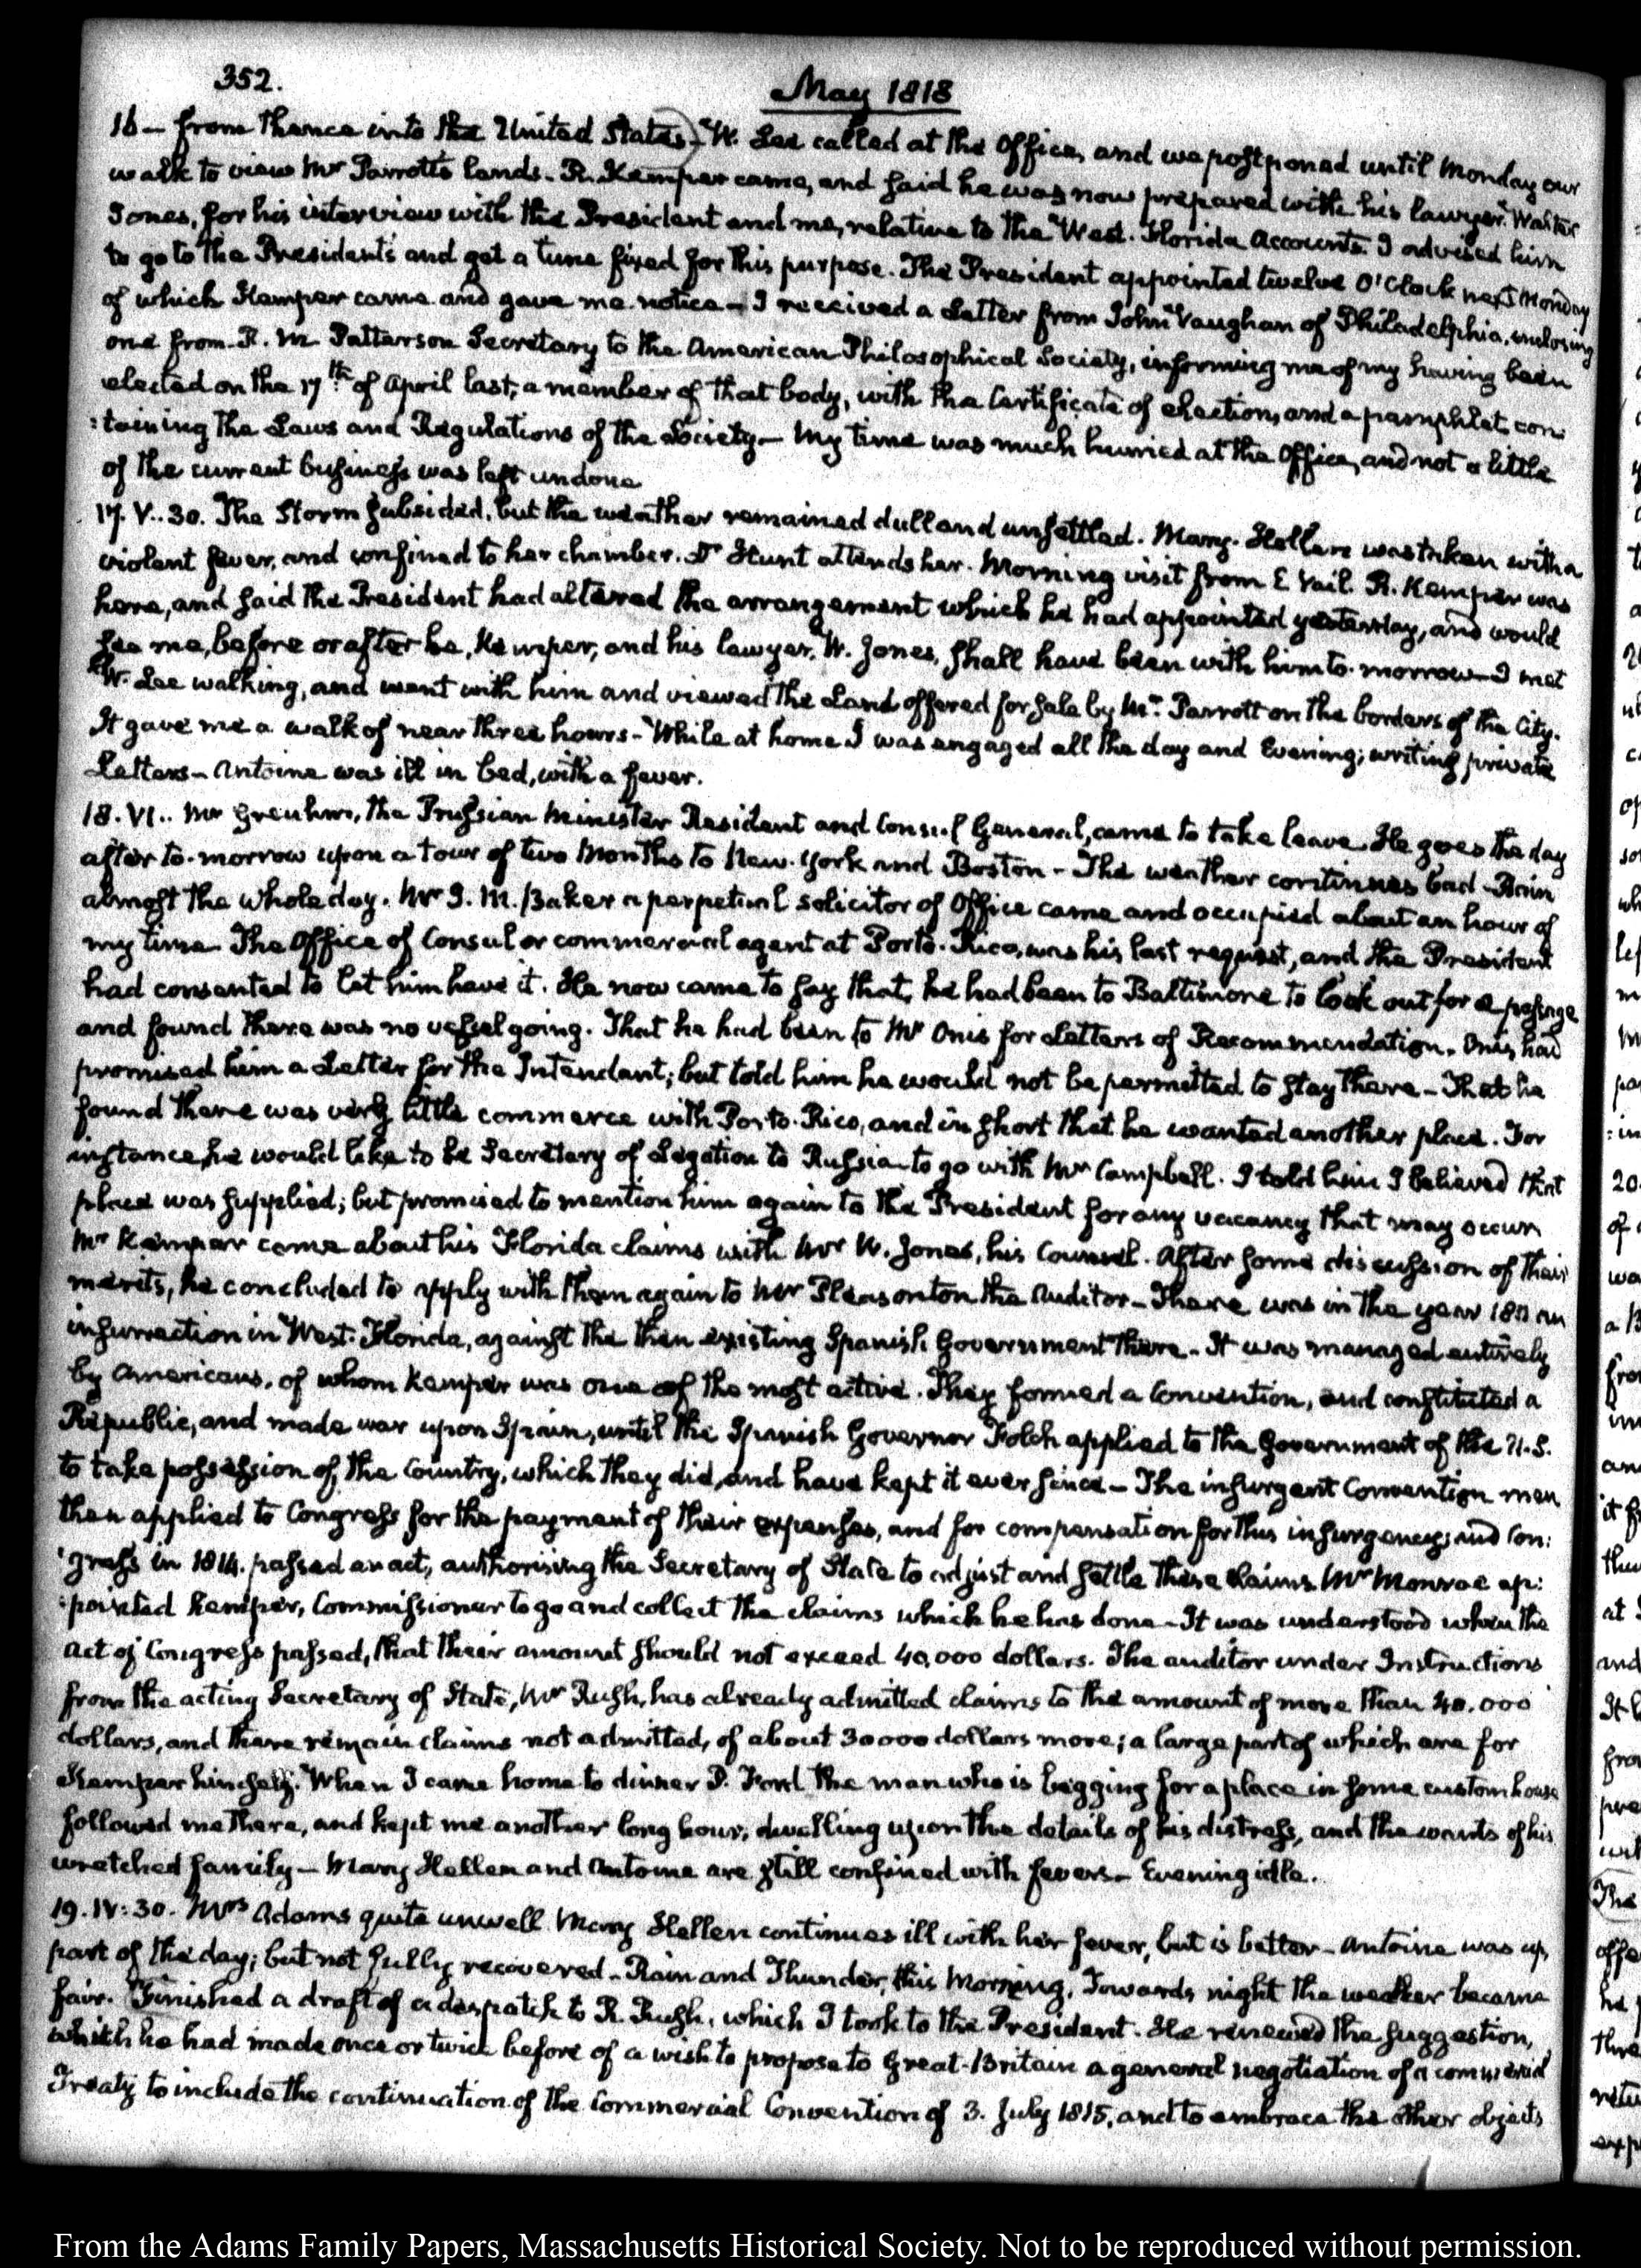 352.
May 1818
16 — from thence into the United States — W. Lee called at the Office, and we postponed until Monday our
walk to view Mr Parrott's lands. R. Kemper came, and said he was now prepared with his lawyer. Walter
Jones, for his interview with the President and me, relative to the West-Florida Accounts. I advised him
to go to the President's and get a time fixed for this purpose. The President appointed twelve O'Clock next Monday
of which Kemper came and gave me notice — I received a Letter from John Vaughan of Philadelphia, enclosing
one from R. M. Patterson Secretary to the American Philosophical Society, informing me of my having been
elected on the 17th of April last, a member of that body, with the Certificate of election, and a pamphlet con:
:taining the Laws and Regulations of the Society — My time was much hurried at the Office, and not a little
of the current business was left undone
17. V..30. The Storm subsided, but the weather remained dull and unsettled. Mary-Hellen was taken with a
violent fever, and confined to her chamber. Dr Hunt attends her. Morning visit from E Vail. R. Kemper was
here, and said the President had altered the arrangement which he had appointed yesterday, and would
see me, before or after he, Kemper, and his lawyer, W. Jones, shall have been with him to-morrow — I met
W. Lee walking, and went with him and viewed the Land offered for sale by Mr. Parrott on the borders of the City.
It gave me a walk of near three hours — While at home I was engaged all the day and Evening; writing private
Letters — Antoine was ill in bed, with a fever.
18. VI.. Mr Greuhm, the Prussian Minister Resident and Consul General, came to take leave. He goes the day
after to-morrow upon a tour of two Months to New-York and Boston — The weather continues bad — Rain
almost the whole day. Mr J. M. Baker a perpetual solicitor of Office came and occupied about an hour of
my time. The Office of Consul or commercial agent at Porto-Rico, was his last request, and the President
had consented to let him have it. He now came to say that, he had been to Baltimore to look out for a passage
and found there was no vessel going. That he had been to Mr Onis for Letters of Recommendation. Onis had
promised him a Letter for the Intendant; but told him he would not be permitted to stay there — That he
found there was very little commerce with Porto-Rico, and in short that he wanted another place. For
instance, he would like to be Secretary of Legation to Russia — to go with Mr Campbell. I told him I believed that
place was supplied; but promised to mention him again to the President for any vacancy that may occur
Mr Kemper came about his Florida claims with Mr W. Jones, his Counsel. After some discussion of their
merits, he concluded to apply with them again to Mr Pleasonton the Auditor — There was in the year 1810 an
insurrection in West-Florida, against the then existing Spanish Government there — It was managed entirely
by Americans, of whom Kemper was one of the most active. They formed a Convention, and constituted a
Republic, and made war upon Spain, until the Spanish Governor Folch applied to the Government of the U.S.
to take possession of the Country, which they did, and have kept it ever since — The insurgent Convention men
then applied to Congress for the payment of their expenses, and for compensation for this insurgency; and Con:
:gress in 1814. passed an act, authorising the Secretary of State to adjust and settle these claims. Mr Monroe ap:
:pointed Kemper, Commissioner to go and collect the claims which he has done — It was understood when the
act of Congress passed, that their amount should not exceed 40,000 dollars. The auditor under Instructions
from the acting Secretary of State, Mr Rush, has already admitted claims to the amount of more than 40.000
dollars, and there remain claims not admitted, of about 30000 dollars more; a large part of which are for
Kemper himself. When I came home to dinner D. Ford the man who is begging for a place in some custom house
followed me there, and kept me another long hour, dwelling upon the details of his distress, and the wants of his
wretched family — Mary Hellen and Antoine are still confined with fevers — Evening idle.
19. IV:30. Mrs Adams quite unwell. Mary Hellen continues ill with her fever, but is better — Antoine was up,
part of the day; but not fully recovered — Rain and Thunder, this Morning. Towards night the weather became
fair. Finished a draft of a despatch to R. Rush, which I took to the President. He renewed the suggestion,
which he had made once or twice before of a wish to propose to Great-Britain a general negotiation of a commercial
Treaty to include the continuation of the Commercial Convention of 3. July 1815, and to embrace the other objects
From the Adams Family Papers, Massachusetts Historical Society. Not to be reproduced without permission.